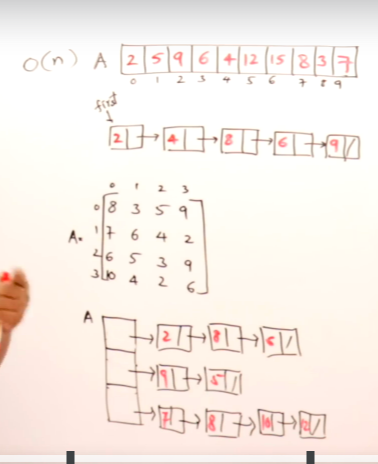 O(n) A 2 5 9 6 4 12 15 8 3 7
0 1 2 3 4 5 6 7 8 9
first
2 4 8 6 9 /
0 1 2 3
0 8 3 5 9
A. 1 7 6 4 2
2 6 5 3 9
3 10 4 2 6
A
2 8 6 /
9 5 /
7 8 10 2 /